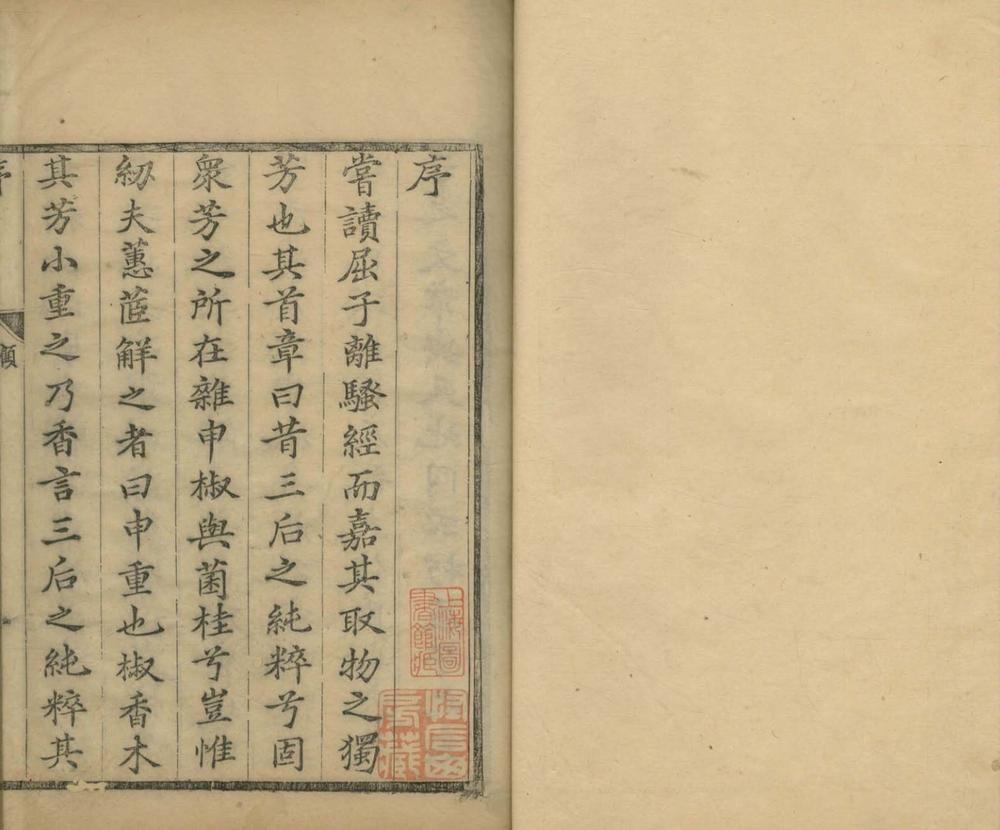 序
嘗讀屈子離騷經而嘉其取物之獨
芳也其首章曰昔三后之純粹兮固
衆芳之所在雜申椒與菌桂兮豈惟
紉夫蕙茝觧之者曰申重也椒香木
其芳小重之乃香言三后之純粹其
序
顧
上海圖
書館藏